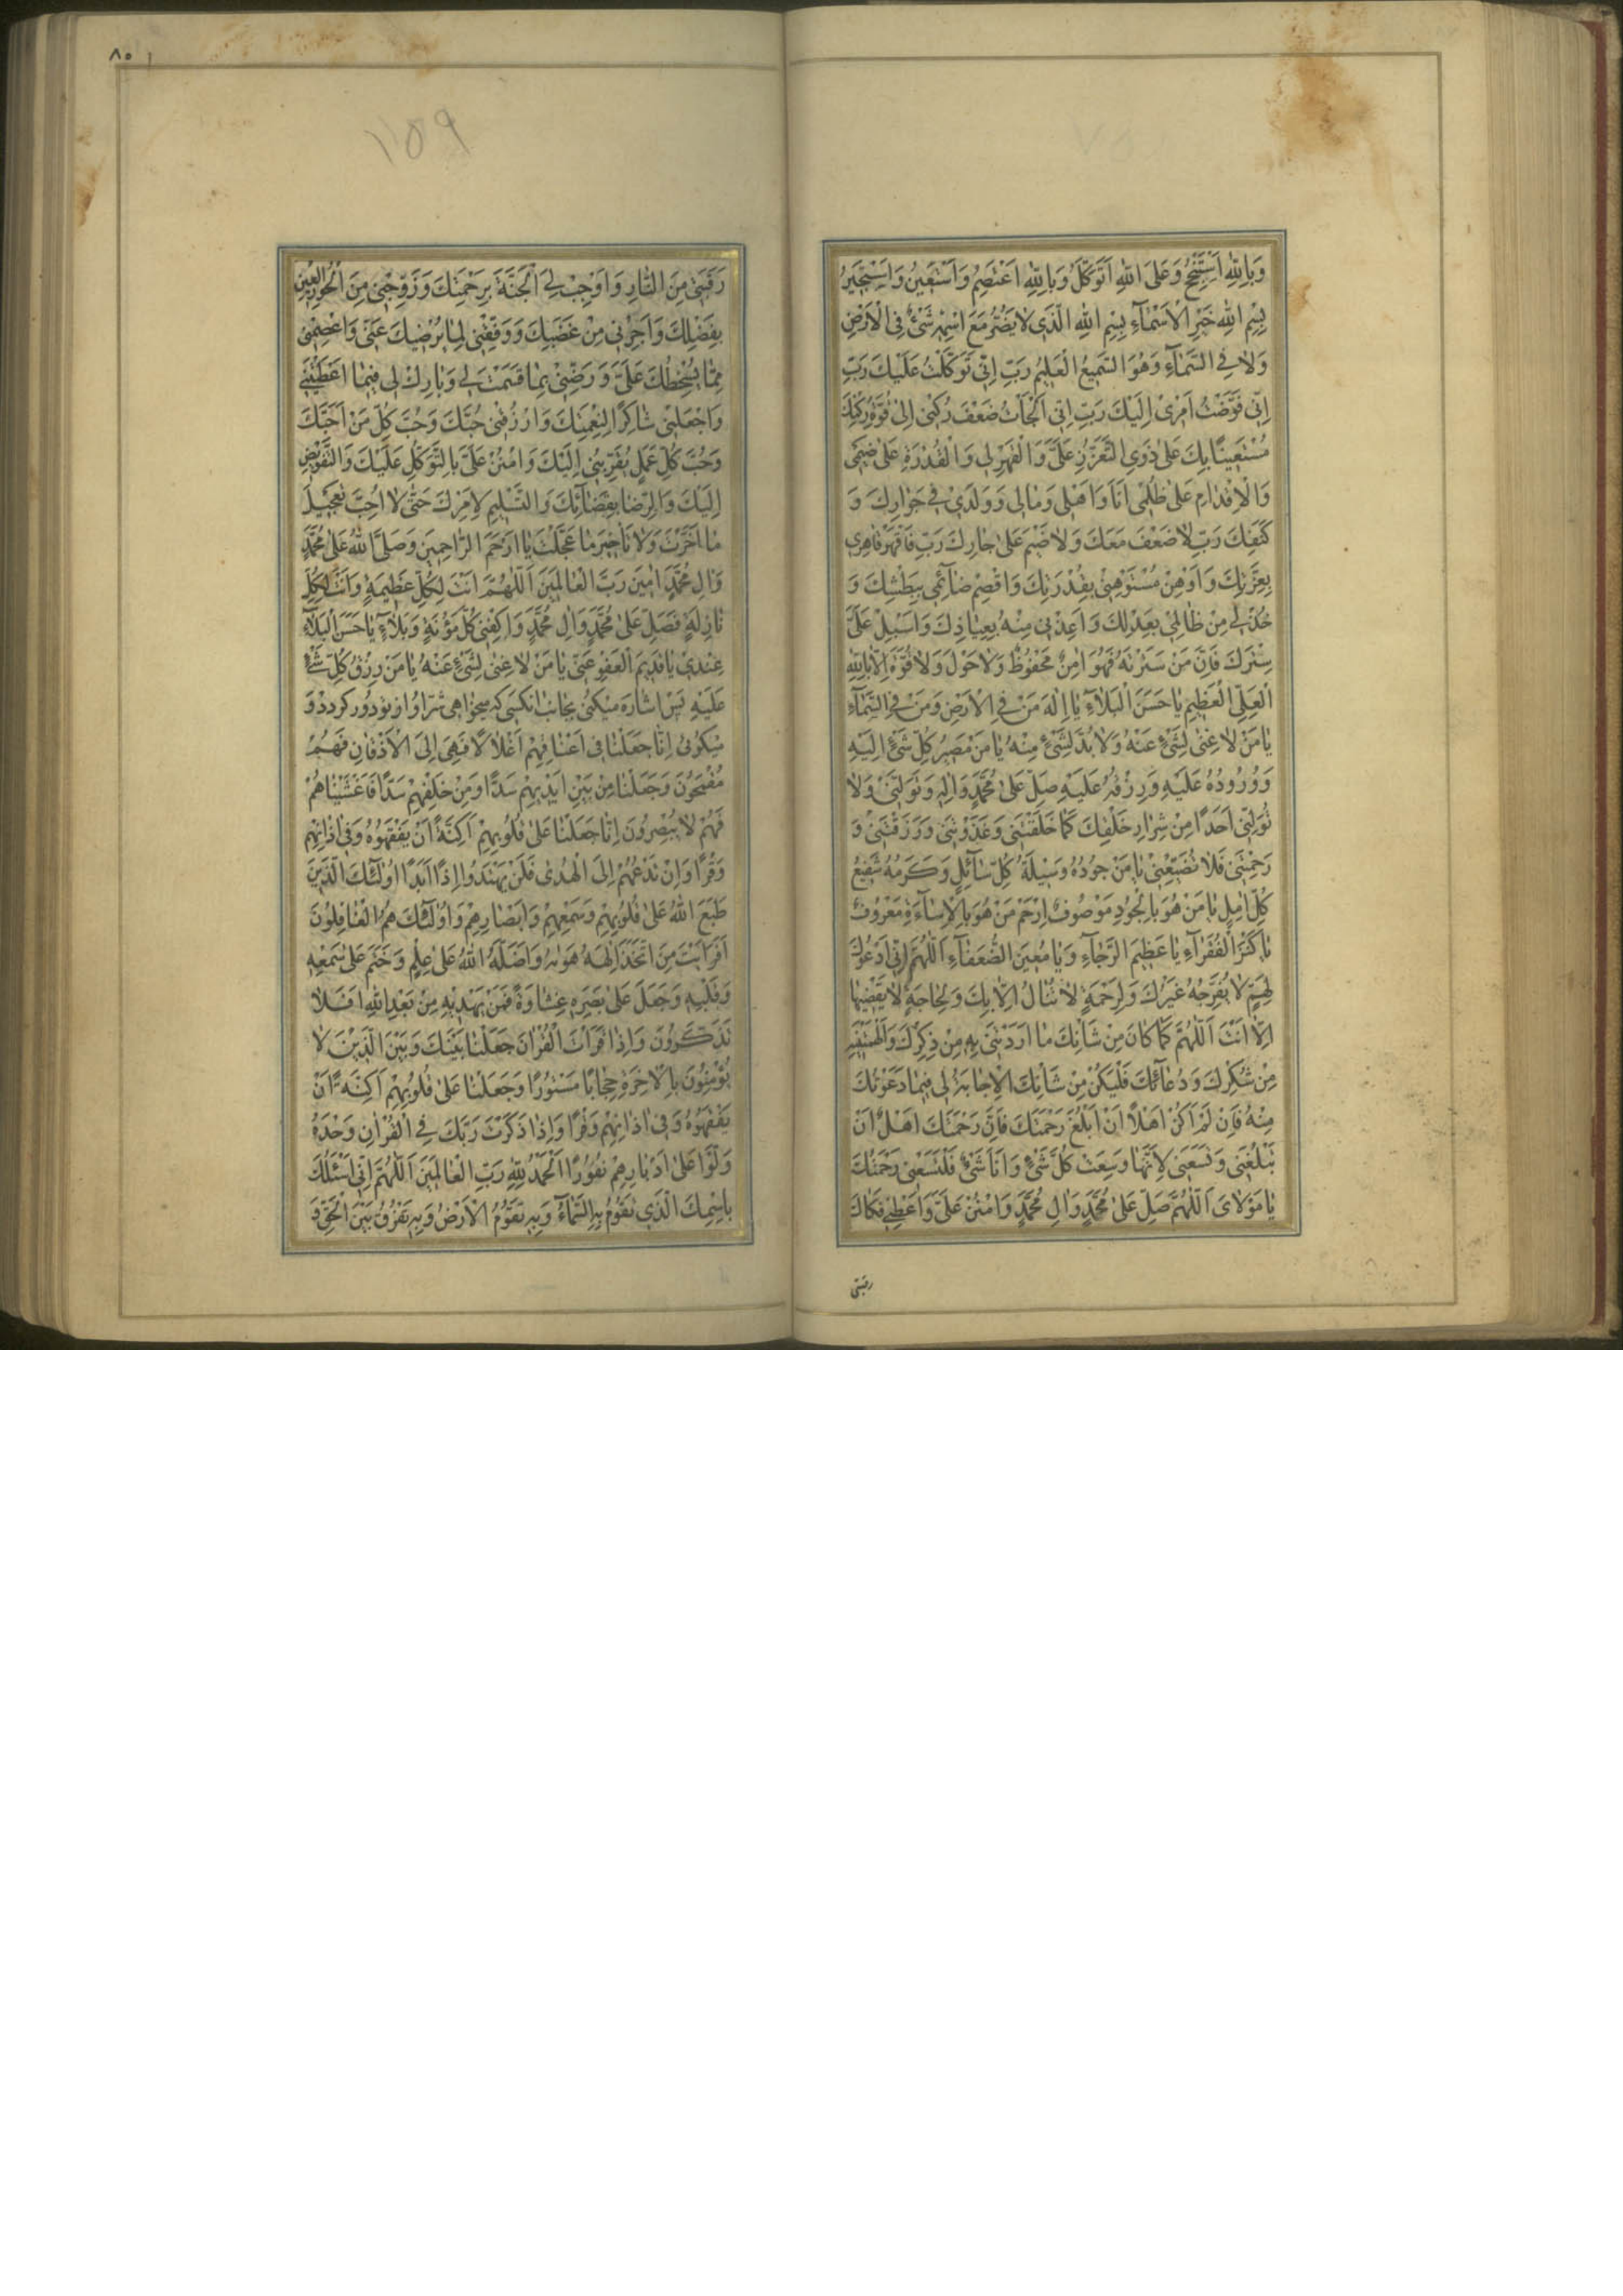 وَبِاللّٰهِ اَسْتَفْتِحُ وَعَلَی اللّٰهِ اَتَوَكَّلُ وَبِاللّٰهِ اَعْتَصِمُ وَاَسْتَعینُ وَاَسْتَجیرُ
بِسْمِ اللّٰهِ خَیْرِ الْاَسْمآءِ بِسْمِ اللّٰهِ الَّذی لا یَضُرُّ مَعَ اسْمِهِ شَیْئٌ فِی الْاَرْضِ
وَلا فِی السَّمآءِ وَهُوَ السَّمیعُ الْعَلیمُ رَبِّ اِنّی تَوَكَّلْتُ عَلَیْكَ رَبِّ
اِنّی فَوَّضْتُ اَمْری اِلَیْكَ رَبِّ اِنّی اَلْجَاْتُ ضَعْفَ رُكْنی اِلیٰ قُوَّةِ رُكْنِكَ
مُسْتَعینًا بِكَ عَلیٰ ذَوِی التَّعَزُّزِ عَلَیَّ وَالْقَهْرِ لی وَالْقُدْرَةِ عَلیٰ ضَیْمی
وَالْاِقْدامِ عَلیٰ ظُلْمی اَنَا وَاَهْلی وَمالی وَوَلَدی فی جَوارِكَ وَ
كَنَفِكَ رَبِّ لا ضَعْفَ مَعَكَ وَلا ضَیْمَ عَلیٰ جارِكَ رَبِّ فَاقْهَرْ قاهِری
بِعِزَّتِكَ وَاَوْهِنْ مُسْتَوْهِنی بِقُدْرَتِكَ وَاقْصِمْ ضآئِمی بِبَطْشِكَ وَ
خُذْ لی مِنْ ظالِمی بِعَدْلِكَ وَاَعِذْنی مِنْهُ بِعِیاذِكَ وَاَسْبِلْ عَلَیَّ
سِتْرَكَ فَاِنَّ مَنْ سَتَرْتَهُ فَهُوَ اٰمِنٌ مَحْفُوظٌ وَلا حَوْلَ وَلا قُوَّةَ اِلّا بِاللّٰهِ
الْعَلِیِّ الْعَظیمِ یا حَسَنَ الْبَلآءِ یا اِلٰهَ مَنْ فِی الْاَرْضِ وَمَنْ فِی السَّمآءِ
یا مَنْ لا غِنیٰ لِشَیْئٍ عَنْهُ وَلا بُدَّ لِشَیْئٍ مِنْهُ یا مَنْ مَصیرُ كُلِّ شَیْئٍ اِلَیْهِ
وَوُرُودُهُ عَلَیْهِ وَرِزْقُهُ عَلَیْهِ صَلِّ عَلیٰ مُحَمَّدٍ وَاٰلِهِ وَتَوَلَّنی وَلا
تُوَلِّنی اَحَدًا مِنْ شِرارِ خَلْقِكَ كَما خَلَقْتَنی وَغَذَوْتَنی وَرَزَقْتَنی وَ
رَحِمْتَنی فَلا تُضَیِّعْنی یا مَنْ جُودُهُ وَسیلَةُ كُلِّ سآئِلٍ وَكَرَمُهُ شَفیعُ
كُلِّ اٰمِلٍ یا مَنْ هُوَ بِالْجُودِ مَوْصُوفٌ اِرْحَمْ مَنْ هُوَ بِالْاِسآءَةِ مَعْرُوفٌ
یا كَنْزَ الْفُقَرآءِ یا عَظیمَ الرَّجآءِ وَیا مُعینَ الضُّعَفآءِ اَللّٰهُمَّ اِنّی اَدْعُوكَ
لِهَمٍّ لا یُفَرِّجُهُ غَیْرُكَ وَلِرَحْمَةٍ لا تُنالُ اِلّا بِكَ وَلِحاجَةٍ لا یَقْضیها
اِلّا اَنْتَ اَللّٰهُمَّ كَما كانَ مِنْ شَاْنِكَ ما اَرَدْتَنی بِهِ مِنْ ذِكْرِكَ وَاَلْهَمْتَنیهِ
مِنْ شُكْرِكَ وَدُعآئِكَ فَلْیَكُنْ مِنْ شَاْنِكَ الْاِجابَةُ لی فیما دَعَوْتُكَ
مِنْهُ فَاِنْ لَمْ اَكُنْ اَهْلًا اَنْ اَبْلُغَ رَحْمَتَكَ فَاِنَّ رَحْمَتَكَ اَهْلٌ اَنْ
تَبْلُغَنی وَتَسَعَنی لِاَنَّها وَسِعَتْ كُلَّ شَیْئٍ وَاَنَا شَیْئٌ فَلْتَسَعْنی رَحْمَتُكَ
یا مَوْلایَ اَللّٰهُمَّ صَلِّ عَلیٰ مُحَمَّدٍ وَاٰلِ مُحَمَّدٍ وَامْنُنْ عَلَیَّ وَاَعْطِنی فَكاكَ
رقبتی
٨٥
١١٥٩
رَقَبَتی مِنَ النّارِ وَاَوْجِبْ لِیَ الْجَنَّةَ بِرَحْمَتِكَ وَزَوِّجْنی مِنَ الْحُورِ الْعینِ
بِفَضْلِكَ وَاَجِرْنی مِنْ غَضَبِكَ وَوَفِّقْنی لِما یُرْضیكَ عَنّی وَاعْصِمْنی
مِمّا یُسْخِطُكَ عَلَیَّ وَرَضِّنی بِما قَسَمْتَ لی وَبارِكْ لی فیما اَعْطَیْتَنی
وَاجْعَلْنی شاكِرًا لِنِعْمَتِكَ وَارْزُقْنی حُبَّكَ وَحُبَّ كُلِّ مَنْ اَحَبَّكَ
وَحُبَّ كُلِّ عَمَلٍ یُقَرِّبُنی اِلَیْكَ وَامْنُنْ عَلَیَّ بِالتَّوَكُّلِ عَلَیْكَ وَالتَّفْویضِ
اِلَیْكَ وَالرِّضا بِقَضآئِكَ وَالتَّسْلیمِ لِاَمْرِكَ حَتّیٰ لا اُحِبَّ تَعْجیلَ
ما اَخَّرْتَ وَلا تَاْخیرَ ما عَجَّلْتَ یا اَرْحَمَ الرّاحِمینَ وَصَلَّی اللّٰهُ عَلیٰ مُحَمَّدٍ
وَاٰلِ مُحَمَّدٍ اٰمینَ رَبَّ الْعالَمینَ اَللّٰهُمَّ اَنْتَ لِكُلِّ عَظیمَةٍ وَاَنْتَ لِكُلِّ
نازِلَةٍ فَصَلِّ عَلیٰ مُحَمَّدٍ وَاٰلِ مُحَمَّدٍ وَاكْفِنی كُلَّ مَؤُنَةٍ وَبَلآءٍ یا حَسَنَ الْبَلآءِ
عِنْدی یا قَدیمَ الْعَفْوِ عَنّی یا مَنْ لا غِنیٰ لِشَیْئٍ عَنْهُ یا مَنْ رِزْقُ كُلِّ شَیْئٍ
عَلَیْهِ پس اشاره میكنی بجانب انكسی كه میخواهی شرّ او از تو دور كردد و
میكوئی اِنّا جَعَلْنا فی اَعْناقِهِمْ اَغْلالًا فَهِیَ اِلَی الْاَذْقانِ فَهُمْ
مُقْمَحُونَ وَجَعَلْنا مِنْ بَیْنِ اَیْدیهِمْ سَدًّا وَمِنْ خَلْفِهِمْ سَدًّا فَاَغْشَیْناهُمْ
فَهُمْ لا یُبْصِرُونَ اِنّا جَعَلْنا عَلیٰ قُلُوبِهِمْ اَكِنَّةً اَنْ یَفْقَهُوهُ وَفی اٰذانِهِمْ
وَقْرًا وَاِنْ تَدْعُهُمْ اِلَی الْهُدیٰ فَلَنْ یَهْتَدُوا اِذًا اَبَدًا اُولٰئِكَ الَّذینَ
طَبَعَ اللّٰهُ عَلیٰ قُلُوبِهِمْ وَسَمْعِهِمْ وَاَبْصارِهِمْ وَاُولٰئِكَ هُمُ الْغافِلُونَ
اَفَرَاَیْتَ مَنِ اتَّخَذَ اِلٰهَهُ هَویٰهُ وَاَضَلَّهُ اللّٰهُ عَلیٰ عِلْمٍ وَخَتَمَ عَلیٰ سَمْعِهِ
وَقَلْبِهِ وَجَعَلَ عَلیٰ بَصَرِهِ غِشاوَةً فَمَنْ یَهْدیهِ مِنْ بَعْدِ اللّٰهِ اَفَلا
تَذَكَّرُونَ وَاِذا قَرَاْتَ الْقُرْاٰنَ جَعَلْنا بَیْنَكَ وَبَیْنَ الَّذینَ لا
یُؤْمِنُونَ بِالْاٰخِرَةِ حِجابًا مَسْتُورًا وَجَعَلْنا عَلیٰ قُلُوبِهِمْ اَكِنَّةً اَنْ
یَفْقَهُوهُ وَفی اٰذانِهِمْ وَقْرًا وَاِذا ذَكَرْتَ رَبَّكَ فِی الْقُرْاٰنِ وَحْدَهُ
وَلَّوْا عَلیٰ اَدْبارِهِمْ نُفُورًا اَلْحَمْدُ لِلّٰهِ رَبِّ الْعالَمینَ اَللّٰهُمَّ اِنّی اَسْئَلُكَ
بِاسْمِكَ الَّذی تَقُومُ بِهِ السَّمآءُ وَبِهِ تَقُومُ الْاَرْضُ وَبِهِ تَفْرُقُ بَیْنَ الْحَقِّ وَ